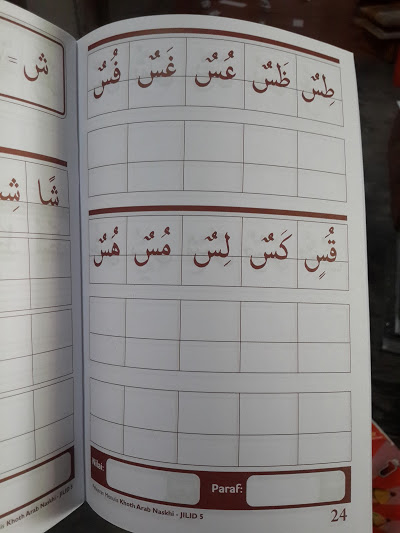 طِسٌ ظَسٌ عُسٌ غَسٌ فُسٌ
قُسٍ كَسٌ لِسٌ مُسٌ هُسٌ
Nilai:
Paraf:
Khoth Arab Naskhi - JILID 5
24
ش
شًا
Khoth Arab Naskhi - JILID 5